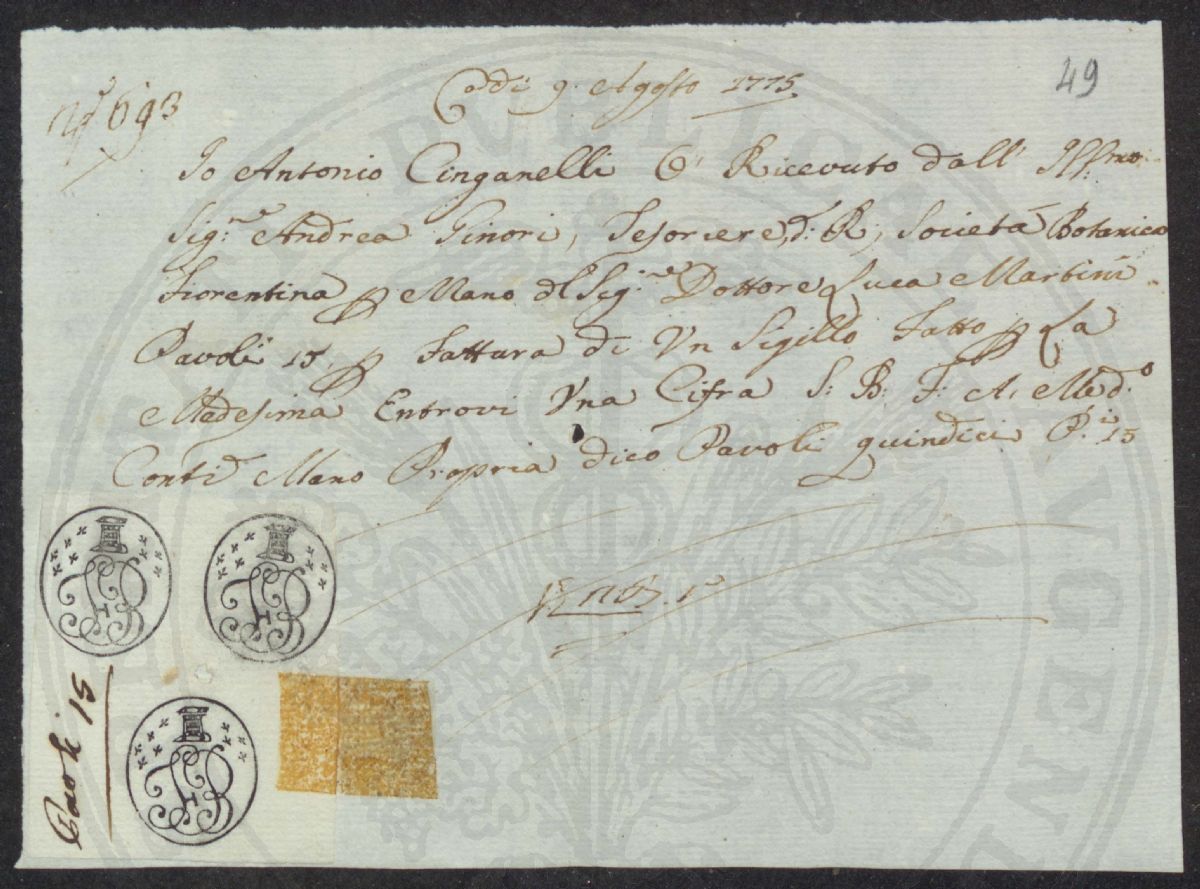 49
N.º 693
Adi 9. Agosto 1775.
Io Antonio Cinganelli Ò Ricevuto dall' Ill:mo
Sig:re Andrea Ginori, Tesoriere, d: R; Società Botanica
Fiorentina p Mano del Sig:re Dottore Luca Martini
Pavoli 15, p fattura di Un Sigillo Fatto p La
Medesima Entrovi Una Cifra S: B: F: A: Med:o
Conti Mano Propria dico Pavoli quindici P:i 15
Paoli 15
PVBLICAE